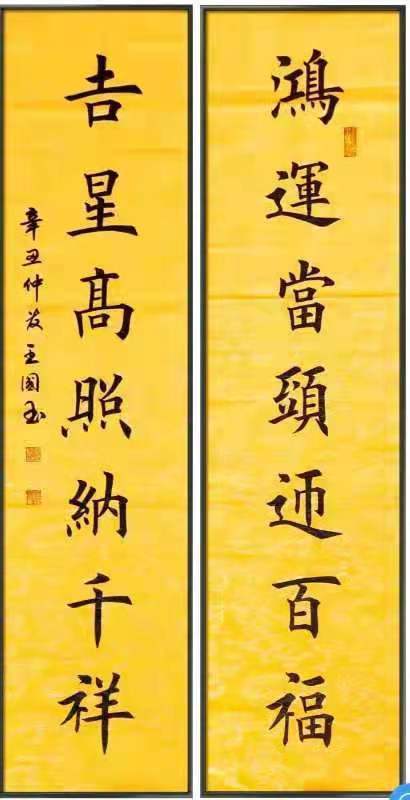 鴻運當頭迊百福
吉星髙照納千祥
辛丑仲夏王國玉